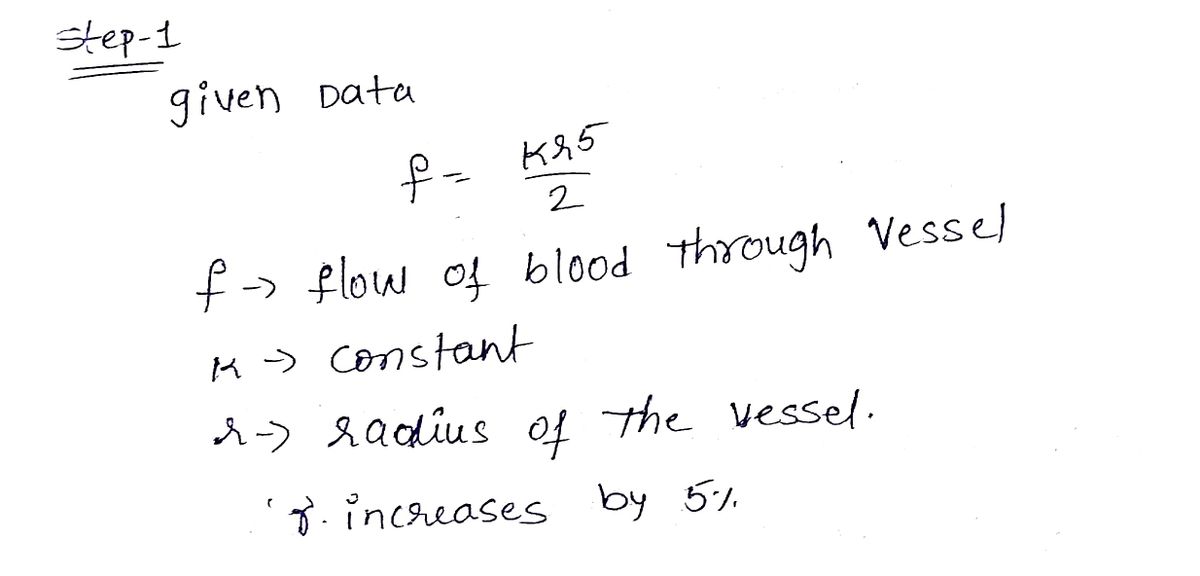 Step-1
given Data
f = kr5
2
f → flow of blood through Vessel
K → constant
r → radius of the vessel.
'r. increases by 5%